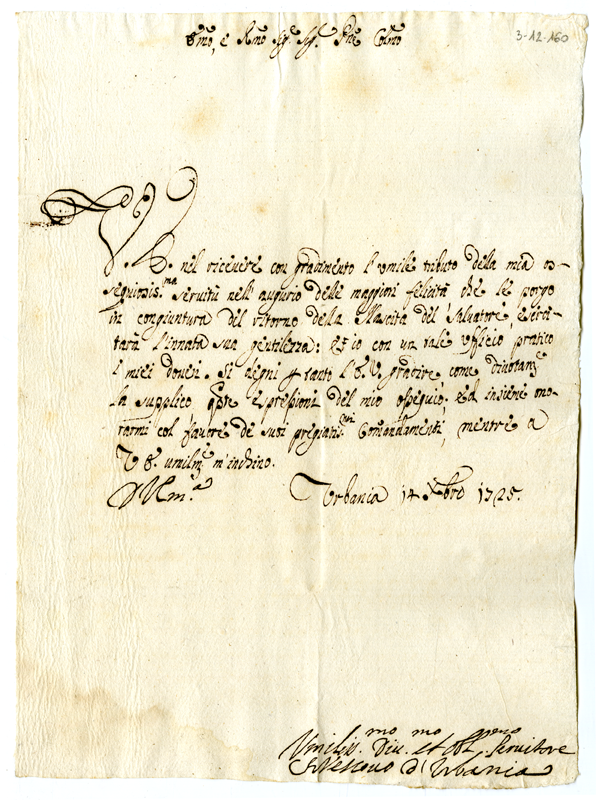 Emo, e Rmo Sig.r Sig.r Pne Colmo
3-12-160
V. E. nel ricevere con gradimento l'umile tributo della mia os-
sequiosis.ma servitù nell'augurio delle maggiori felicità che le porgo
in congiuntura del ritorno della Nascita del Salvatore, eserci-
tarà l'innata sua gentilezza: et io con un tale ufficio pratico
i miei doveri. Si degni p tanto l'E. V. gradire come divotam.e
la supplico, qste espressioni del mio ossequio; ed insieme ono-
rarmi col favore de suoi pregiatis.mi Comandamenti, mentre a
V. E. umilm.e m'inchino.
Urbania 14 Xbre 1725.
Umilis.mo Div.mo et Obl. Servitore
Il Vescovo d'Urbania